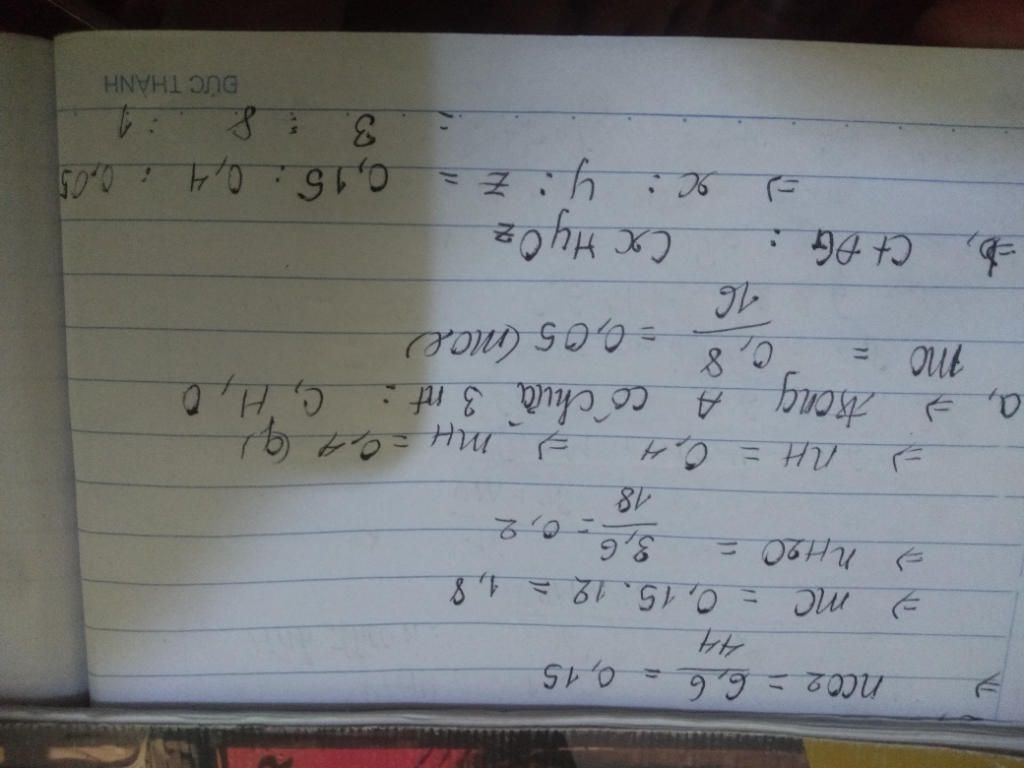 ⇒ nCO2 = 6,6/44 = 0,15
⇒ mC = 0,15.12 = 1,8
⇒ nH2O = 3,6/18 = 0,2
⇒ nH = 0,4 ⇒ mH = 0,4 (g)
a, ⇒ trong A có chứa 3 nt : C, H, O
mO = 0,8/16 = 0,05 (mol)
b, CTĐG : CxHyOz
⇒ x : y : z = 0,15 : 0,4 : 0,05
= 3 : 8 : 1
ĐỨC THÀNH